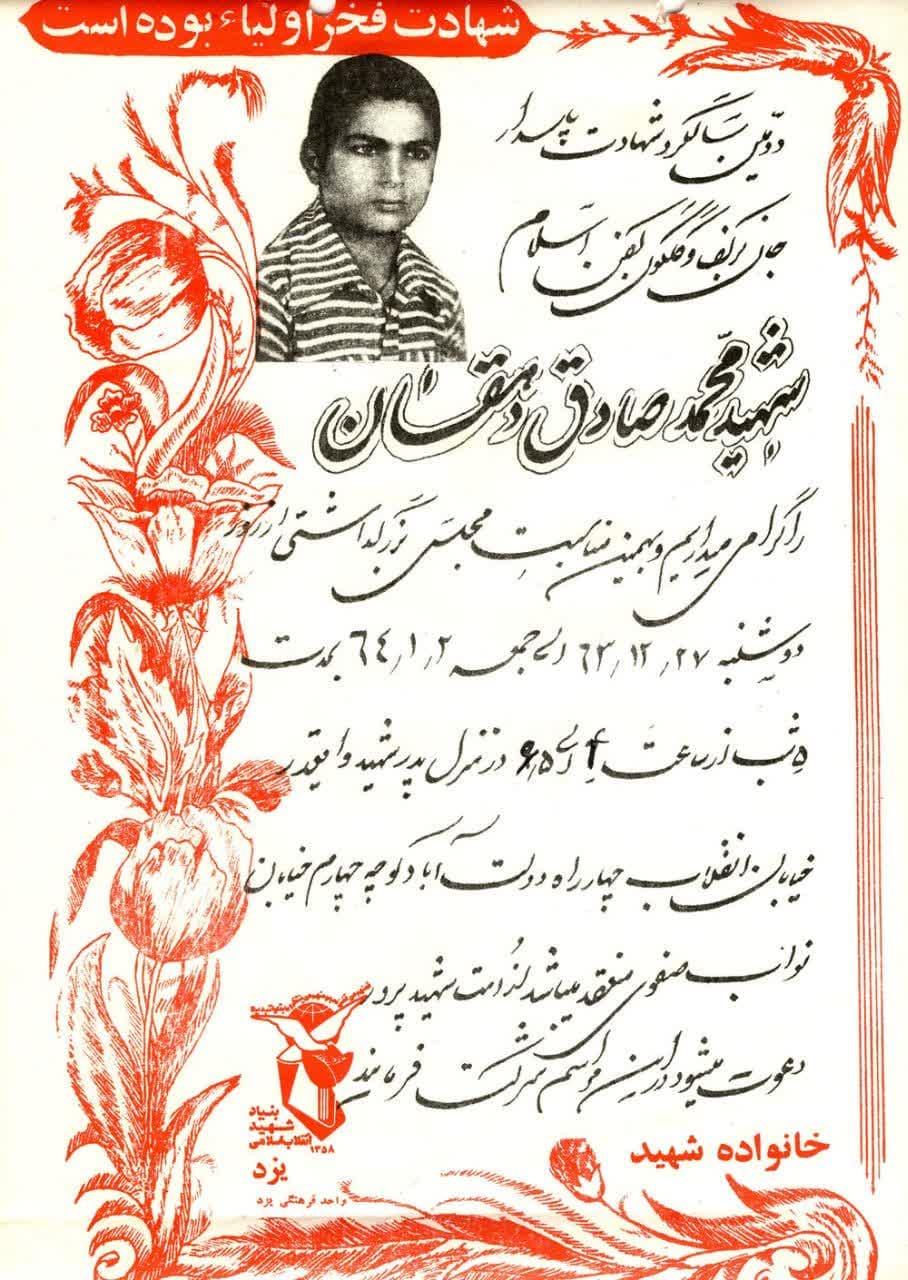 شهادت فخر اولیاء بوده است
دوّمین سالگرد شهادت پاسدار
جان برکف و گلگون کفن اسلام
شهید محمّد صادق دهقان
را گرامی میداریم و بهمین مناسبت مجلس بزرگداشتی از روز
دوشنبه ۶۳٫۱۲٫۲۷ الی جمعه ۶۴٫۱٫۲ بمدت
۵ شب از ساعت ۴ الی ۵٫ در منزل پدر شهید واقع در
خیابان انقلاب چهار راه دولت آباد کوچه چهارم خیابان
نواب صفوی منعقد میباشد لذا امت شهید پرور
دعوت میشود در این مراسم شرکت فرمایند
خانواده شهید
بنیاد
شهید
انقلاب اسلامی
۱۳۵۸
یزد
واحد فرهنگی یزد